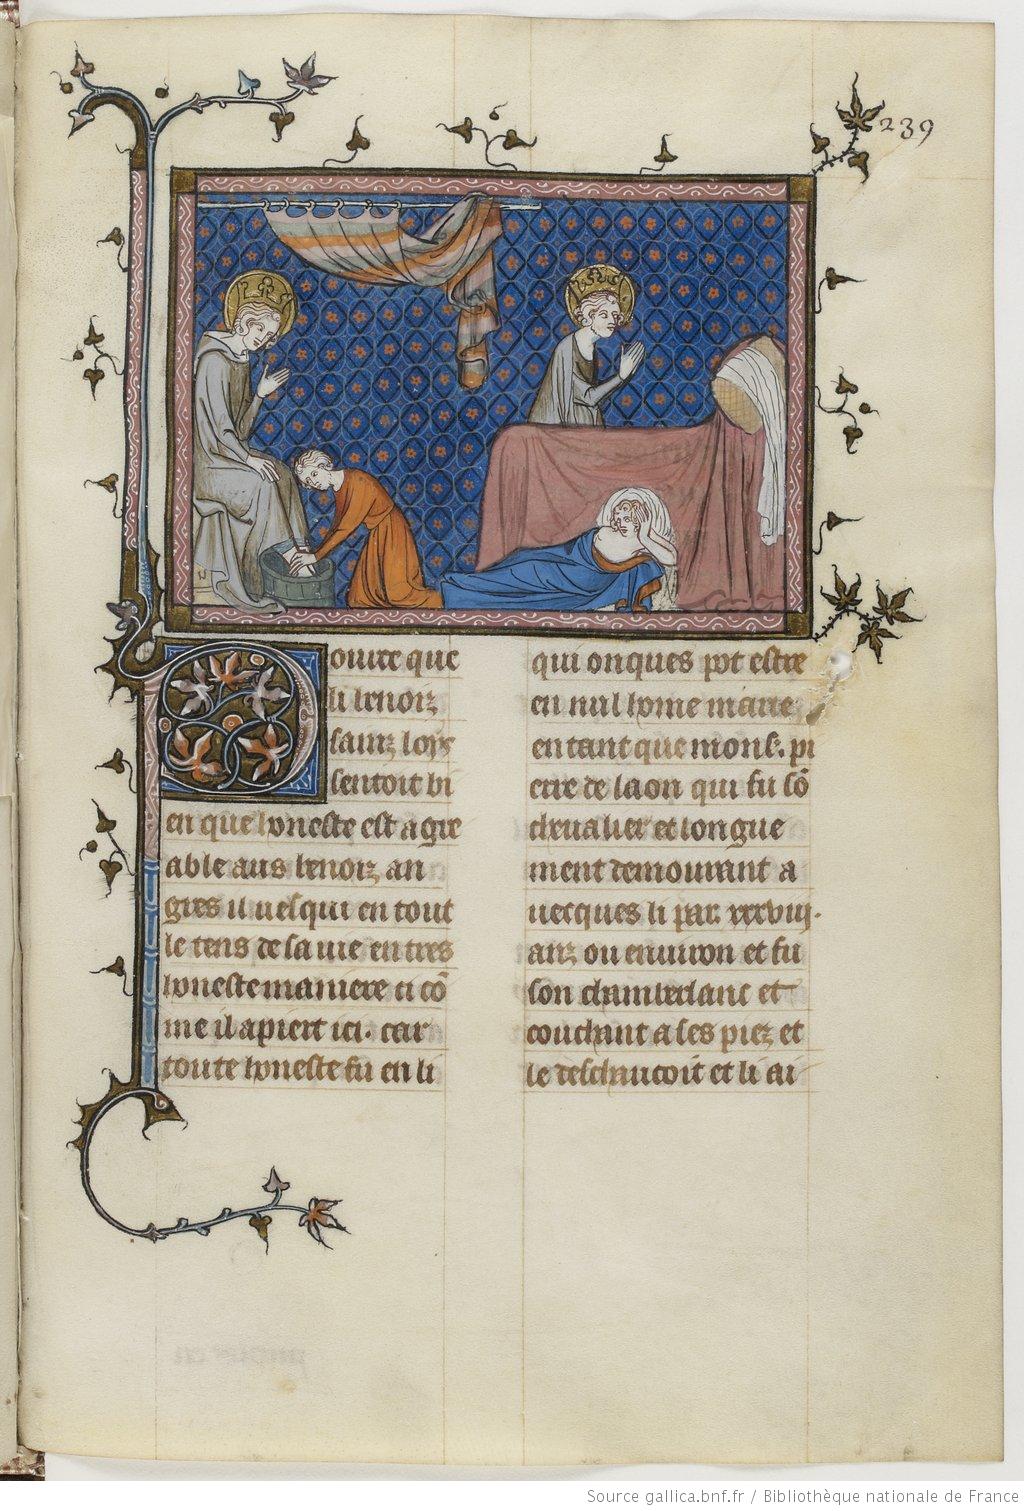 239
Pource que
li benoiz
sainz loys
sentoit bi
en que honeste est agre
able aus benoiz an
gres il uesqui en tout
le tens de sa uie en tres
honeste maniere si cõ
me il apiert ici. car
toute honeste fu en li
qui onques pot estre
en nul home marie
en tant que mons. pi
erre de laon qui fu sõ
cheualier et longue
ment demourant a
uecques li par. xxxviij.
anz ou enuiron et fu
son chamberlanc et
couchant a ses piez et
le deschaucoit et li ai
Source gallica.bnf.fr / Bibliothèque nationale de France